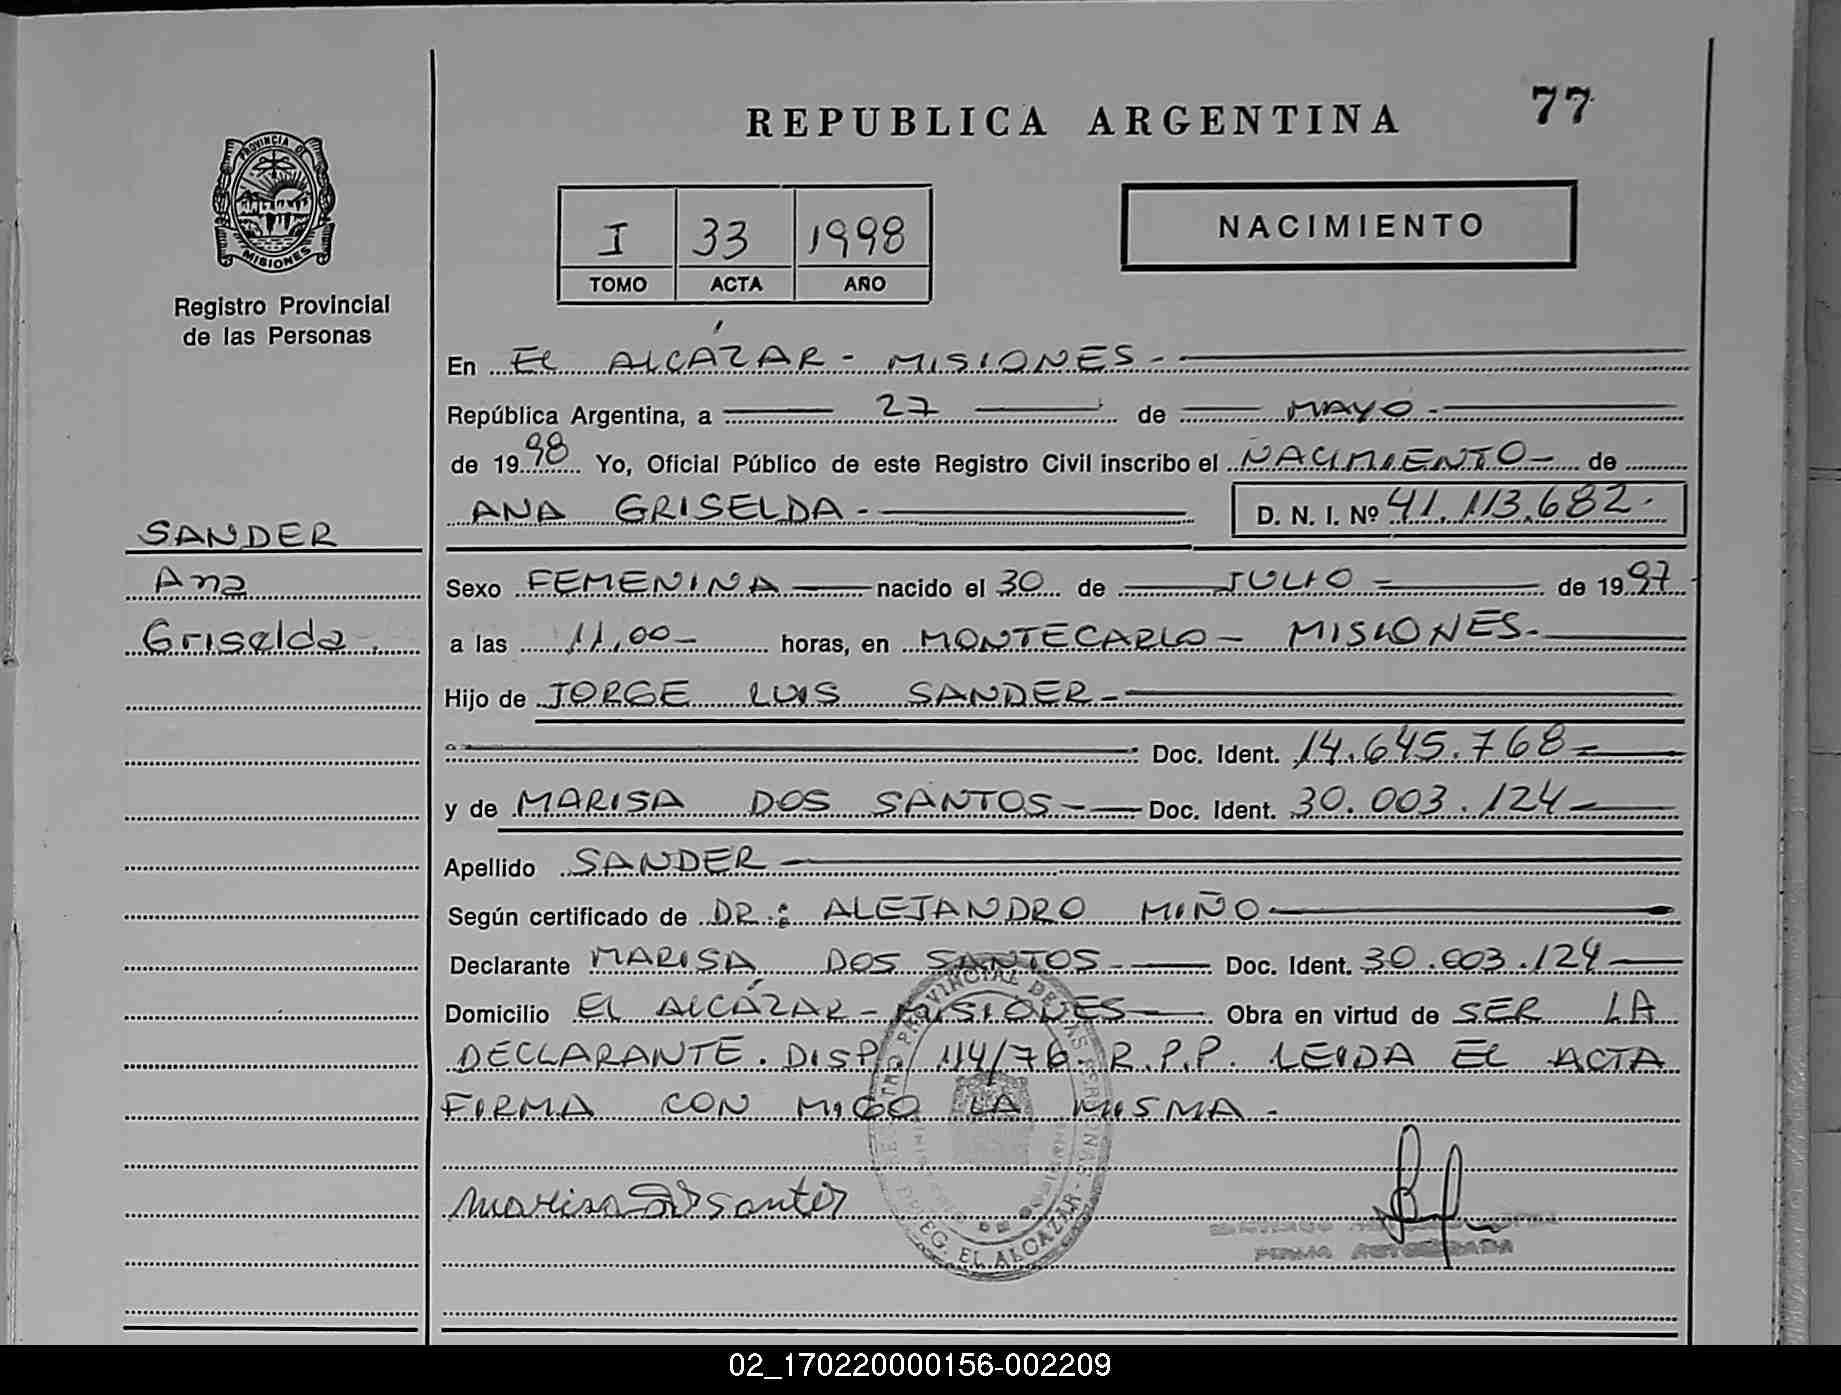 REPUBLICA ARGENTINA
77
PROVINCIA DE
MISIONES
Registro Provincial
de las Personas
I 33 1998
TOMO ACTA AÑO
NACIMIENTO
En EL ALCÁZAR - MISIONES -
República Argentina, a 27 de MAYO -
de 1998 Yo, Oficial Público de este Registro Civil inscribo el NACIMIENTO - de
ANA GRISELDA - D. N. I. Nº 41.113.682.
SANDER
Ana
Griselda.
Sexo FEMENINA nacido el 30 de JULIO de 1997
a las 11,00 - horas, en MONTECARLO - MISIONES -
Hijo de JORGE LUIS SANDER -
Doc. Ident. 14.645.768 -
y de MARISA DOS SANTOS - Doc. Ident. 30.003.124 -
Apellido SANDER -
Según certificado de DR.: ALEJANDRO MIÑO
Declarante MARISA DOS SANTOS - Doc. Ident. 30.003.124
Domicilio EL ALCÁZAR - MISIONES - Obra en virtud de SER LA
DECLARANTE. DISP. 114/76. R.P.P. LEIDA EL ACTA
FIRMA CON MIGO LA MISMA -
marisa dos santos
EL ALCAZAR
FIRMA AUTORIZADA
02_170220000156-002209